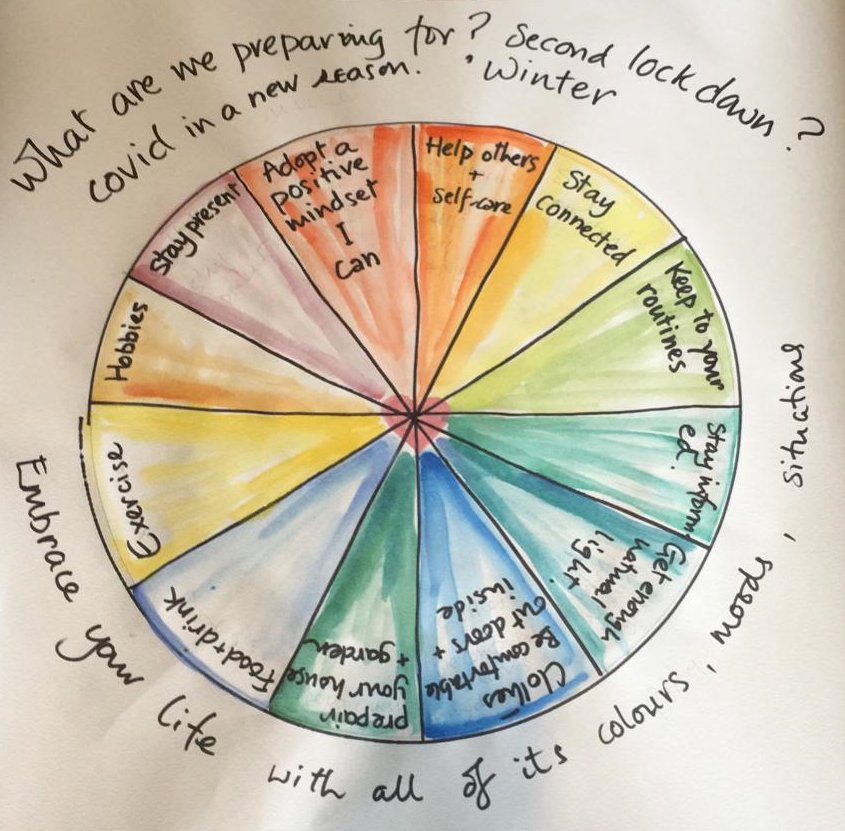 What are we preparing for? Second lock down?
covid in a new season. Winter
Help others
+
Self-care
Stay
connected
Keep to your
routines
Stay inform
ed.
Get enough
natural
light.
Clothes
Be comfortable
out doors +
inside
prepair
your house
+ garden
Food + drink
Exercise
Hobbies
Stay present
Adopt a
positive
mindset
I
Can
Embrace your life with all of its colours, moods, situations